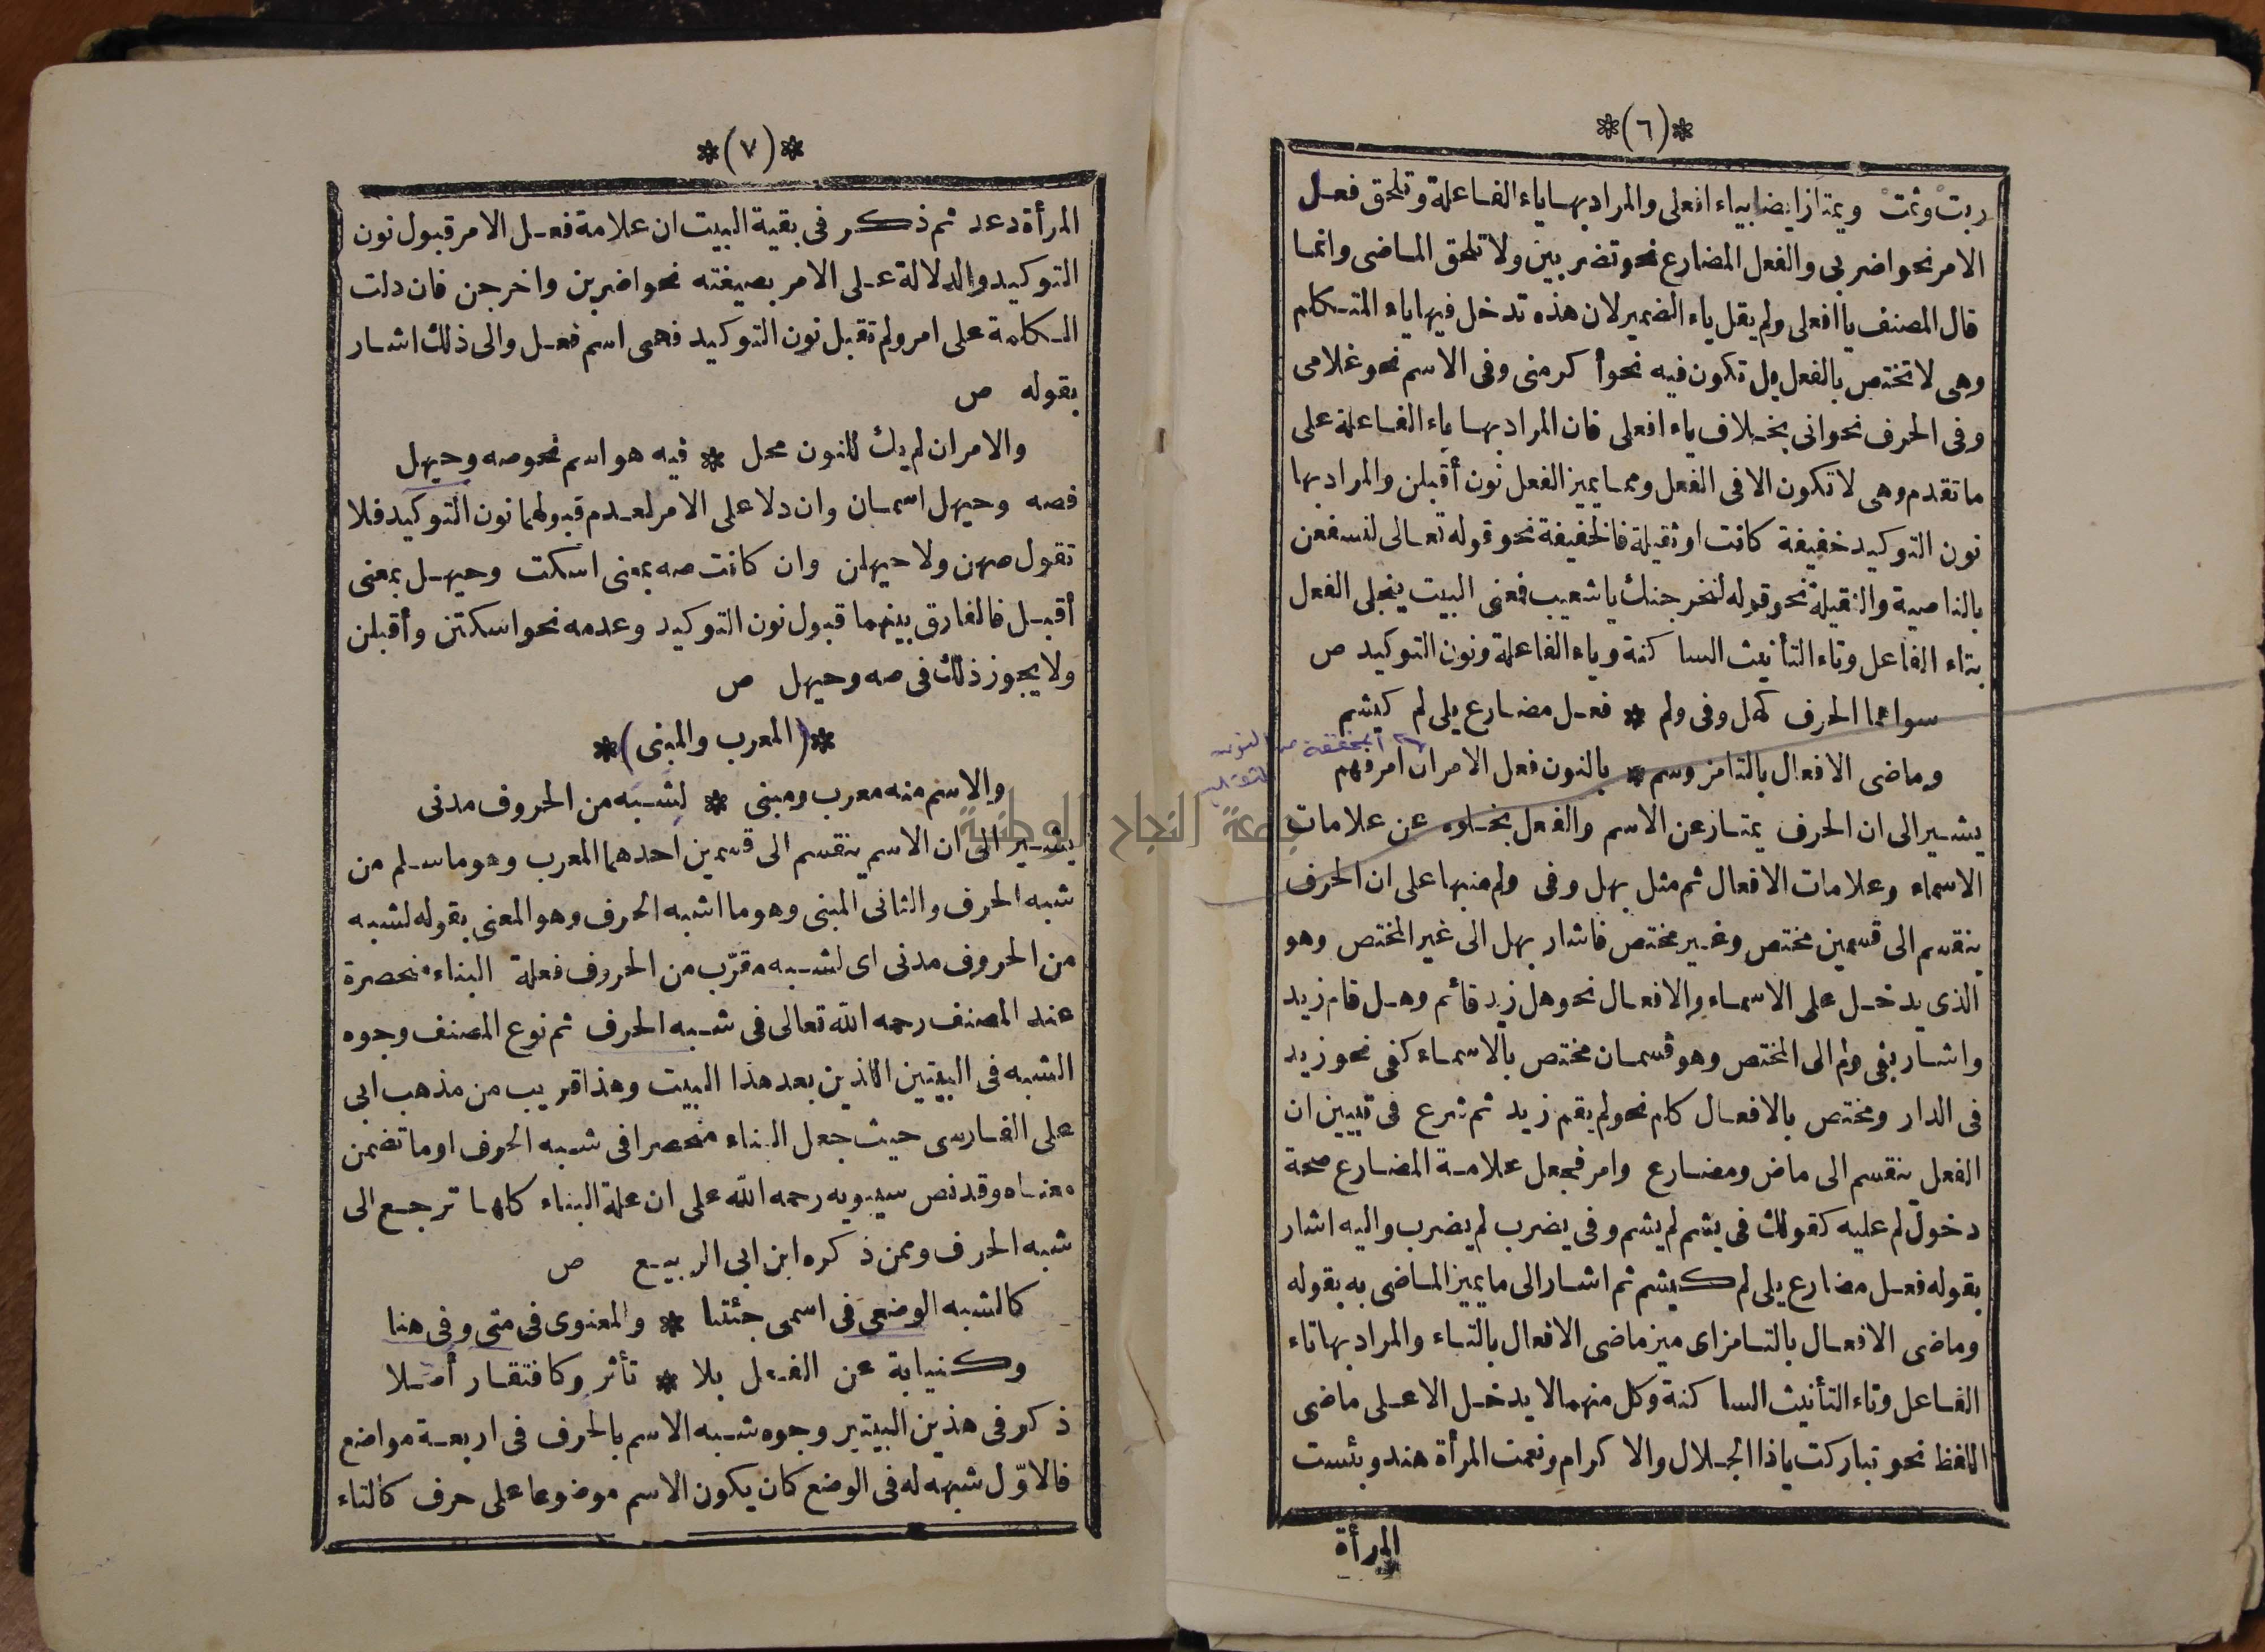 *(٦)*
ربت وثمت ويمتاز ايضا بياء افعلى والمراد بها ياء الفاعلة وتلحق فعل
الامر نحو اضربى والفعل المضارع نحو تضربين ولا تلحق الماضى وانما
قال المصنف يا افعلى ولم يقل ياء الضمير لان هذه تدخل فيها ياء المتكلم
وهى لا تختص بالفعل بل تكون فيه نحو أكرمنى وفى الاسم نحو غلامى
وفى الحرف نحو انى بخلاف ياء افعلى فان المراد بها ياء الفاعلة على
ما تقدم وهى لا تكون الا فى الفعل ومما يميز الفعل نون أقبلن والمراد بها
نون التوكيد خفيفة كانت او ثقيلة فالخفيفة نحو قوله تعالى لنسفعن
بالناصية والثقيلة نحو قوله لنخرجنك يا شعيب فمعنى البيت ينجلى الفعل
بتاء الفاعل وتاء التأنيث الساكنة وياء الفاعلة ونون التوكيد ص
سواهما الحرف كهل وفى ولم * فعل مضارع يلى لم كيشم
وماضى الافعال بالتا مز وسم * بالنون فعل الامر ان امر فهم
يشير الى ان الحرف يمتاز عن الاسم والفعل بخلوه عن علامات
الاسماء وعلامات الافعال ثم مثل بهل وفى ولم منبها على ان الحرف
ينقسم الى قسمين مختص وغير مختص فاشار بهل الى غير المختص وهو
الذى يدخل على الاسماء والافعال نحو هل زيد قائم وهل قام زيد
واشار بفى ولم الى المختص وهو قسمان مختص بالاسماء كفى نحو زيد
فى الدار ومختص بالافعال كلم نحو لم يقم زيد ثم شرع فى تبيين ان
الفعل ينقسم الى ماض ومضارع وامر فجعل علامة المضارع صحة
دخول لم عليه كقولك فى يشم لم يشم وفى يضرب لم يضرب واليه اشار
بقوله فعل مضارع يلى لم كيشم ثم اشار الى ما يميز الماضى به بقوله
وماضى الافعال بالتا مز اى ميز ماضى الافعال بالتاء والمراد بها تاء
الفاعل وتاء التأنيث الساكنة وكل منهما لا يدخل الا على ماضى
اللفظ نحو تباركت ياذا الجلال والاكرام ونعمت المرأة هند وبئست
المرأة
*(٧)*
المرأة دعد ثم ذكر فى بقية البيت ان علامة فعل الامر قبول نون
التوكيد والدلالة على الامر بصيغته نحو اضربن واخرجن فان دلت
الكلمة على امر ولم تقبل نون التوكيد فهى اسم فعل والى ذلك اشار
بقوله ص
والامر ان لم يك للنون محل * فيه هو اسم نحو صه وحيهل
فصه وحيهل اسمان وان دلا على الامر لعدم قبولهما نون التوكيد فلا
تقول صهن ولا حيهلن وان كانت صه بمعنى اسكت وحيهل بمعنى
أقبل فالفارق بينهما قبول نون التوكيد وعدمه نحو اسكتن وأقبلن
ولا يجوز ذلك فى صه وحيهل ص
*(المعرب والمبنى)*
والاسم منه معرب ومبنى * لشبه من الحروف مدنى
يشير الى ان الاسم ينقسم الى قسمين احدهما المعرب وهو ما سلم من
شبه الحرف والثانى المبنى وهو ما اشبه الحرف وهو المعنى بقوله لشبه
من الحروف مدنى اى لشبه مقرّب من الحروف فعلة البناء منحصرة
عند المصنف رحمه الله تعالى فى شبه الحرف ثم نوع المصنف وجوه
الشبه فى البيتين اللذين بعد هذا البيت وهذا قريب من مذهب ابى
على الفارسى حيث جعل البناء منحصرا فى شبه الحرف او ما تضمن
معناه وقد نص سيبويه رحمه الله على ان علة البناء كلها ترجع الى
شبه الحرف وممن ذكره ابن ابى الربيع ص
كالشبه الوضعى فى اسمى جئتنا * والمعنوى فى متى وفى هنا
وكنيابة عن الفعل بلا * تأثر وكافتقار أصلا
ذكر فى هذين البيتين وجوه شبه الاسم بالحرف فى اربعة مواضع
فالاوّل شبهه له فى الوضع كان يكون الاسم موضوعا على حرف كالتاء